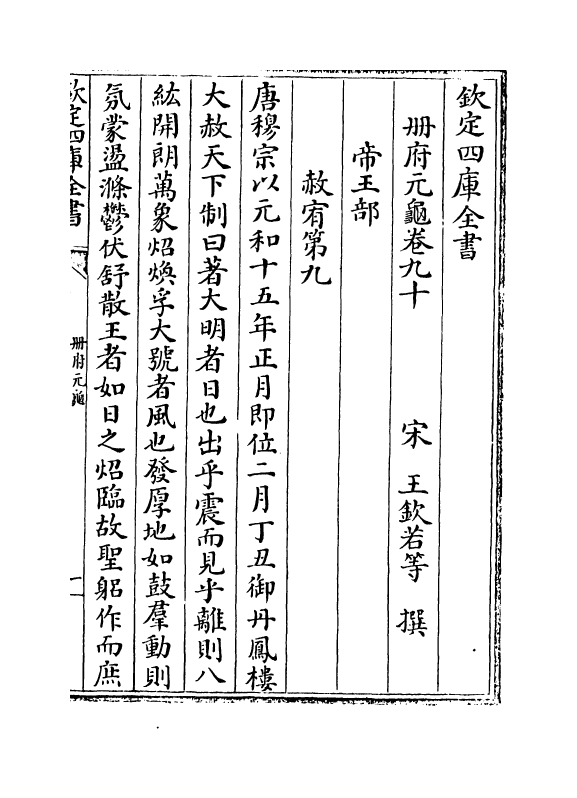 欽定四庫全書
冊府元龜卷九十　宋　王欽若等　撰
帝王部
赦宥第九
唐穆宗以元和十五年正月即位二月丁丑御丹鳳樓
大赦天下制曰著大明者日也出乎震而見乎離則八
紘開朗萬象炤煥孚大號者風也發厚地如鼓羣動則
氛蒙盪滌鬱伏舒散王者如日之炤臨故聖躳作而庶
欽定四庫全書
冊府元龜
一